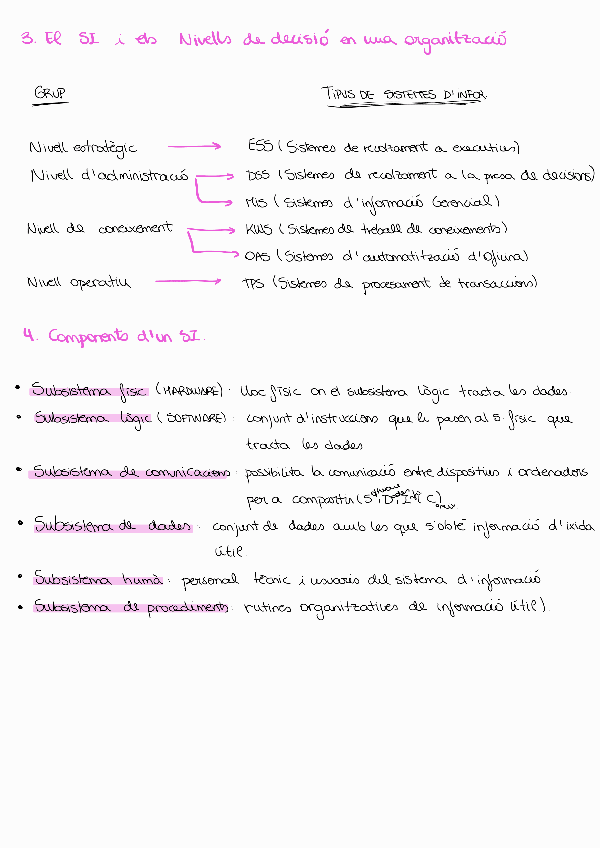 3. El SI i els Nivells de decisió en una organització
GRUP TIPUS DE SISTEMES D'INFOR.
Nivell estratègic → ESS (Sistemes de recolzament a executius)
Nivell d'administració → DSS (Sistemes de recolzament a la presa de decisions)
→ MIS (Sistemes d'informació Gerencial)
Nivell de coneixement → KWS (Sistemes de treball de coneixements)
→ OAS (Sistemes d'automatització d'Oficina)
Nivell operatiu → TPS (Sistemes de processament de transaccions)
4. Components d'un SI.
• Subsistema físic (HARDWARE): lloc físic on el subsistema lògic tracta les dades.
• Subsistema lògic (SOFTWARE): conjunt d'instruccions que li passen al s. físic que
tracta les dades
• Subsistema de comunicacions: possibilita la comunicació entre dispositius i ordenadors
per a compartir (S, D, I i C)
• Subsistema de dades: conjunt de dades amb les que s'obté informació d'ixida
útil
• Subsistema humà: personal tècnic i usuaris del sistema d'informació
• Subsistema de procediments: rutines organitzatives de informació útil).